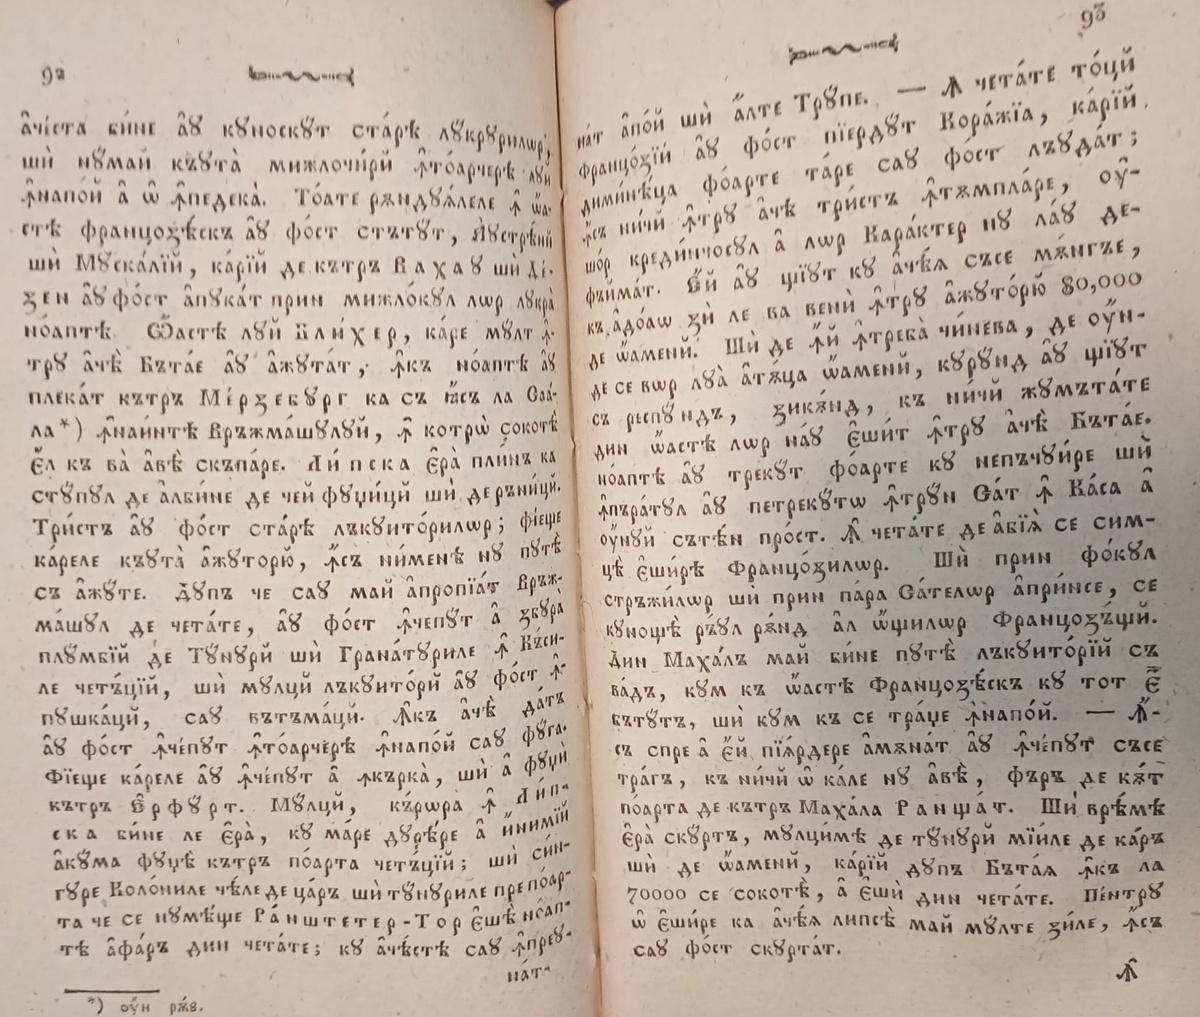 92
а҆чѣ́ста би́не а҆ꙋ кꙋноскꙋ́т ста́рѣ лꙋкрꙋ́рилѡр,
шѝ нꙋ́май къꙋта̀ мижлочи́рй ꙟ҆то́арчерѣ лꙋй
ꙟ҆напо́й а҆ ѡ҆ ꙟ҆педека̀. То́ате рѫндꙋѧ́леле ꙟ҆ ѡ҆а-
стѣ францоз́ѣскъ а҆ꙋ фо́ст стътꙋ́т, А҆ꙋстрѣ́нй
шѝ Мꙋска́лїй, ка́рїй де кътръ Вахаꙋ шѝ Де́-
зен а҆ꙋ фо́ст а҆пꙋка́т прин мижло́кꙋл лѡр лꙋкра̀
но́аптѣ. Ѡ҆́астѣ лꙋй Бли́хер, ка́ре мꙋлт ꙟ҆-
трꙋ а҆чѣ̀ Бъта́е а҆ꙋ а҆жꙋта́т, ꙟ҆къ но́аптѣ а҆ꙋ
плека́т кътръ Ме́рзебꙋрг ка съ і҆́съ ла Саа́-
ла*) ꙟ҆наи́нтѣ Връжма́шꙋлꙋй, ꙟ҆ котрѡ̀ сокотѣ̀
є҆́л къ ва̀ а҆вѣ̀ скъпа́ре. Ли́пска є҆ра̀ пли́нъ ка
стꙋ́пꙋл де а҆лби́не де чей фꙋџи́цй шѝ де ръни́цй.
Три́стъ а҆ꙋ фо́ст ста́рѣ лъкꙋито́рилѡр; фїе́ще
ка́реле къꙋта̀ а҆жꙋторю̆, ꙟ҆съ ни́менѣ нꙋ пꙋтѣ̀
съ а҆жꙋте. Дꙋ́пъ че саꙋ май а҆пропїа́т Връж-
ма́шꙋл де чета́те, а҆ꙋ фо́ст ꙟ҆чепꙋ́т а҆ збꙋра̀
плꙋ́мбїй де Тꙋ́нꙋрй шѝ Грана́тꙋриле ꙟ҆ Къ́си-
ле четъ́цїй, шѝ мꙋлцй лъкꙋито́рй а҆ꙋ фо́ст ꙟ҆-
пꙋшка́цй, саꙋ вътъма́цй. ꙟ҆къ а҆чѣ̀ да́тъ
а҆ꙋ фо́ст ꙟ҆че́пꙋт ꙟ҆то́арчерѣ ꙟ҆напо́й саꙋ фꙋ́га.
Фїеще ка́реле а҆ꙋ ꙟ҆че́пꙋт а҆ ꙟ҆кърка̀, шѝ а҆ фꙋџѝ
кътръ Є҆рфꙋ́рт. Мꙋ́лцй, къ́рѡра ꙟ҆ Ли́п-
ска би́не ле є҆ра̀, кꙋ ма́ре дꙋрѣ́ре а҆ и҆́нимїй
а҆кꙋма фꙋџѣ̀ кътръ по́арта четъ́цїй; шѝ си́н-
гꙋре Коло́ниле чѣ́ле де ца́ръ шѝ тꙋнꙋриле пре по́ар-
та че се нꙋмѣ́ще Ра́нштетер-Тор є҆шѣ̀ но́ап-
тѣ а҆фа́ръ дин чета́те; кꙋ а҆чѣ́стѣ саꙋ ꙟ҆преꙋ-
на́т
*) оу҆́н рѫ́в.
93
на́т а҆по́й шѝ а҆́лте Трꙋ́пе. — ꙟ҆ чета́те то́цй
францо́зїй а҆ꙋ фо́ст пїердꙋ́т Кора́жїа, ка́рїй
димине́ца фо́арте та́ре саꙋ фо́ст лъꙋда́т;
ꙟ҆съ ни́чй ꙟ҆трꙋ а҆чѣ̀ три́стъ ꙟ҆тѫмпла́ре, оу҆-
шо́р креди́нчосꙋл а҆ лѡр Кара́ктер нꙋ ла́ꙋ де-
фъйма́т. Є҆́й а҆ꙋ щїꙋт кꙋ а҆чѣ́ѧ съсе мѫ́нгъе,
къ а҆до́аѡ зѝ ле ва венѝ ꙟ҆трꙋ а҆жꙋто́рю̆ 80,000
де ѡ҆́аменй. Шѝ де ꙟ҆́й ꙟ҆треба̀ чи́нева, де оу҆́н-
де се вѡр лꙋа̀ а҆тѫ́ца ѡ҆́аменй, кꙋрꙋ́нд а҆ꙋ щїꙋт
съ респꙋ́ндъ, зикѫ́нд, къ ни́чй жꙋмъта́те
дин ѡ҆́астѣ лѡр на́ꙋ є҆ши́т ꙟ҆трꙋ а҆чѣ̀ Бъта́е.
но́аптѣ а҆ꙋ трекꙋ́т фо́арте кꙋ непъчꙋи́ре шѝ
ꙟ҆пъра́тꙋл а҆ꙋ петрекꙋ́тѡ ꙟ҆трꙋ́н Са́т ꙟ҆ Ка́са а҆
оу҆́нꙋй сътѣ́н про́ст. ꙟ҆ чета́те де а҆бїѧ̀ се сим-
цѣ̀ є҆ши́рѣ Францо́зилѡр. Шѝ прин фо́кꙋл
стръжи́лѡр шѝ прин па́ра Са́телѡр а҆при́нсе, се
кꙋнощѣ̀ ръ́ꙋл рѫ́нд а҆л ѡ҆́щилѡр Францозъ́щй.
Дин Маха́лъ май би́не пꙋтѣ̀ лъкꙋито́рїй съ
ва́дъ, кꙋм къ ѡ҆́астѣ Францозѣ́скъ кꙋ тот є҆́
бътꙋ́тъ, шѝ кꙋм къ се тра́џе ꙟ҆напо́й. — ꙟ҆́-
съ спре а҆ є҆́й пїѧ́рдере а҆мѫна́т а҆ꙋ ꙟ҆че́пꙋт съсе
тра́гъ, къ ни́чй ѡ҆ ка́ле нꙋ а҆вѣ̀, фъръ де кѫ́т
по́арта де кътръ Маха́ла Раншта́т. Шѝ врѣ́мѣ
є҆ра̀ скꙋ́ртъ, мꙋлци́мѣ де тꙋ́нꙋрй мїйле де ка́ръ
шѝ де ѡ҆́аменй, ка́рїй дꙋпъ Бъта́ѧ ꙟ҆къ ла
70000 се сокотѣ̀, а҆ є҆шѝ дин чета́те. Пе́нтрꙋ
ѡ҆ є҆ши́ре ка а҆чѣ́ѧ липсѣ̀ май мꙋлте зи́ле, ꙟ҆съ
саꙋ фо́ст скꙋрта́т.
ꙟ҆